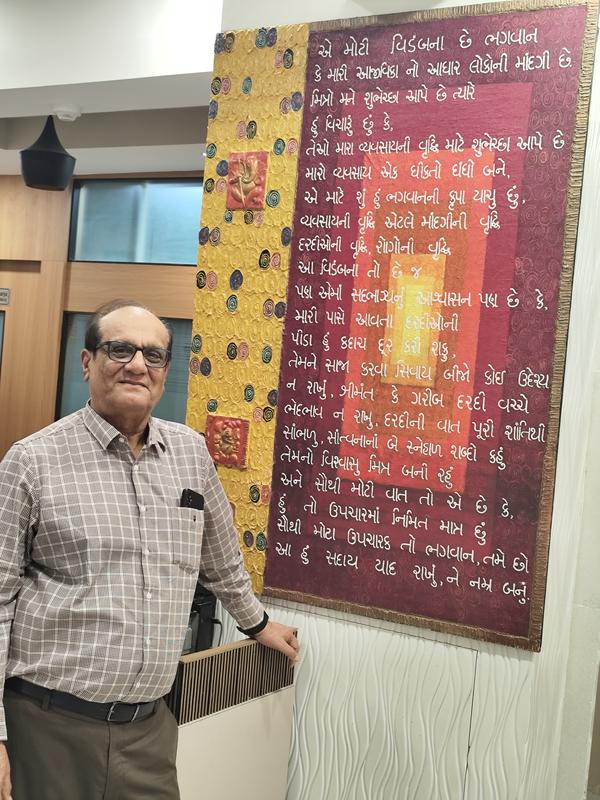 એ મોટી વિડંબના છે ભગવાન
કે મારી આજીવિકા નો આધાર લોકોની માંદગી છે
મિત્રો મને શુભેચ્છા આપે છે ત્યારે
હું વિચારું છું કે,
તેઓ મારા વ્યવસાયની વૃદ્ધિ માટે શુભેચ્છા આપે છે
મારો વ્યવસાય એક ધીકતો ધંધો બને,
એ માટે શું હું ભગવાનની કૃપા યાચુ છું,
વ્યવસાયની વૃદ્ધિ એટલે માંદગીની વૃદ્ધિ
દરદીઓની વૃદ્ધિ, રોગોની વૃદ્ધિ
આ વિડંબના તો છે જ
પણ એમાં સદભાગ્યનું આશ્વાસન પણ છે કે,
મારી પાસે આવતા દરદીઓની
પીડા હું કદાચ દૂર કરી શકુ,
તેમને સાજા કરવા સિવાય બીજો કોઈ ઉદેશ્ય
ન રાખું, શ્રીમંત કે ગરીબ દરદી વચ્ચે
ભેદભાવ ન રાખુ, દરદીની વાત પૂરી શાંતિથી
સાંભળુ, સાન્ત્વનાનાં બે સ્નેહાળ શબ્દો કહું
તેમનો વિશ્વાસુ મિત્ર બની રહું
અને સૌથી મોટી વાત તો એ છે કે,
હું તો ઉપચારમાં નિમિત માત્ર છું
સૌથી મોટા ઉપચારક તો ભગવાન, તમે છો
આ હું સદાય યાદ રાખું, ને નમ્ર બનું.